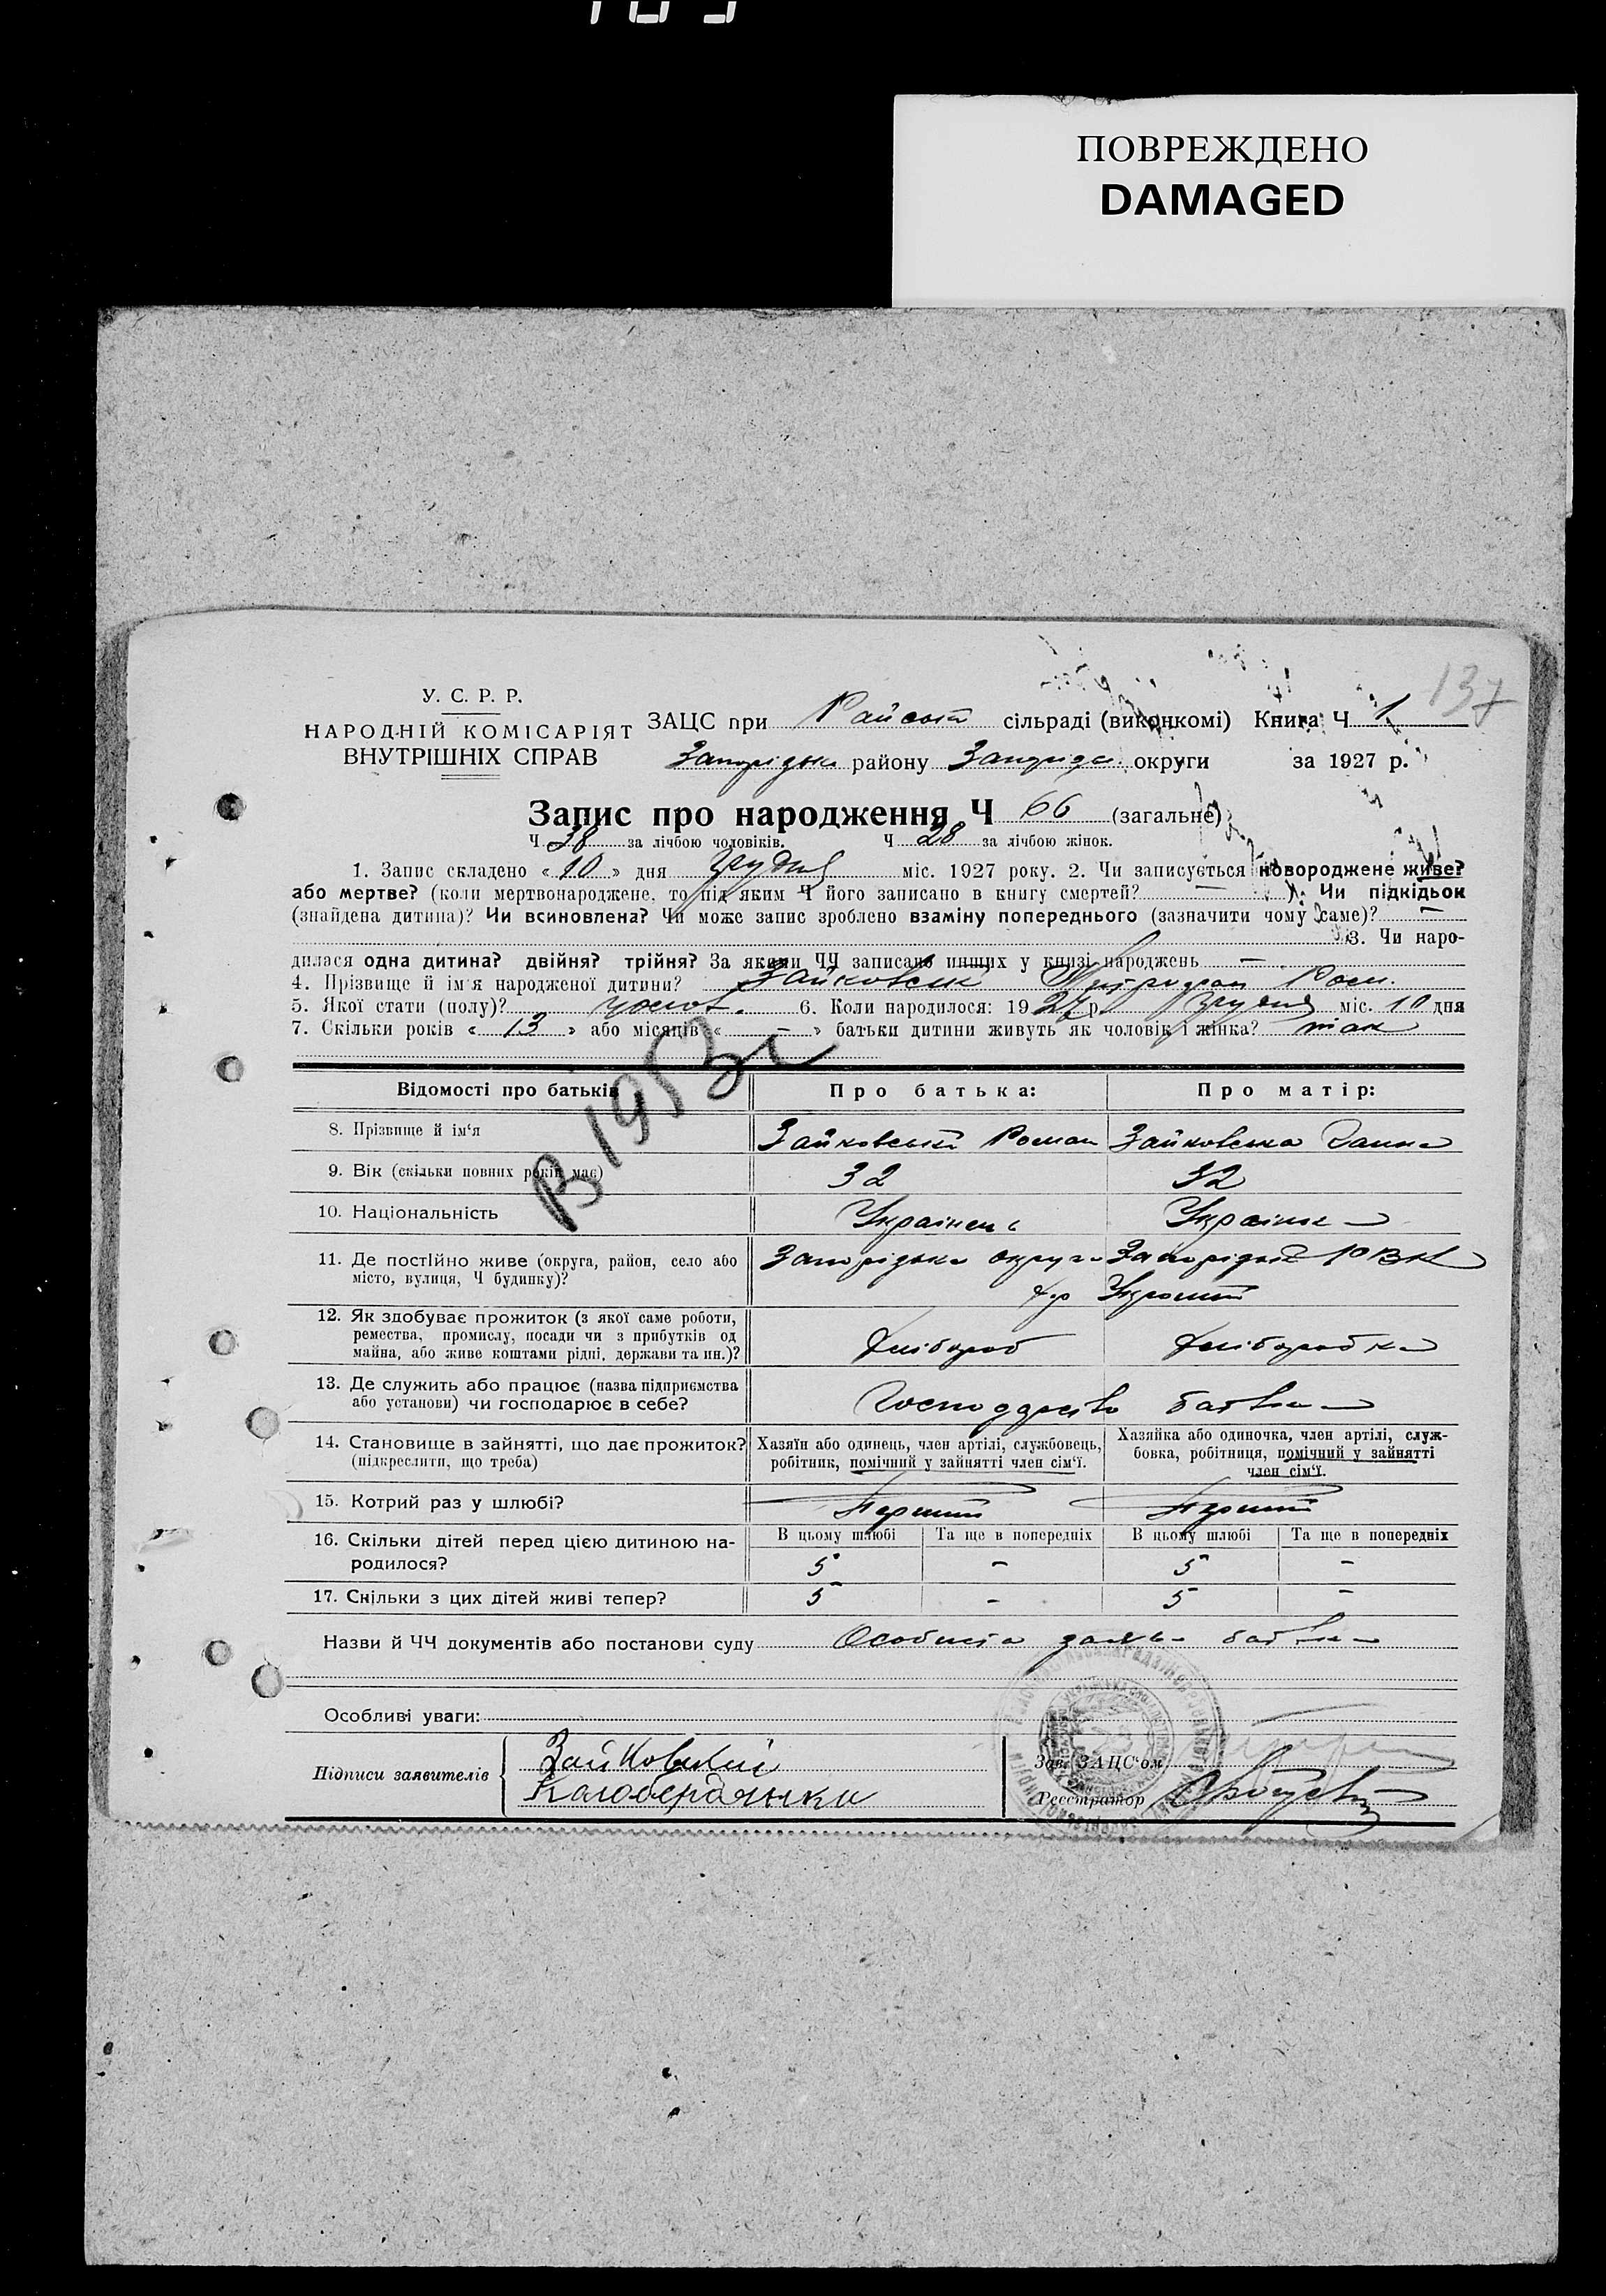 ПОВРЕЖДЕНО
DAMAGED
137
У. С. Р. Р.
НАРОДНІЙ КОМІСАРІЯТ
ВНУТРІШНІХ СПРАВ
ЗАЦС при Райській сільраді (виконкомі) Книга Ч 1
Запорізьке району Запорізь округи за 1927 р.
Запис про народження Ч 66 (загальне)
Ч 38 за лічбою чоловіків. Ч 28 за лічбою жінок.
1. Запис складено « 10 » дня грудня міс. 1927 року. 2. Чи записується новороджене живе?
або мертве? (коли мертвонароджене, то під яким Ч його записано в книгу смертей? — ). Чи підкідьок
(знайдена дитина)? Чи всиновлена? Чи може запис зроблено взаміну попереднього (зазначити чому саме)? —
3. Чи наро-
дилася одна дитина? двійня? трійня? За якими ЧЧ записано инших у книзі народжень —
4. Прізвище й ім'я народженої дитини? Зайковськ Ром.
5. Якої стати (полу)? чолов. 6. Коли народилося: 1927 р. грудня міс. 10 дня
7. Скільки років « 13 » або місяців « — » батьки дитини живуть як чоловік і жінка? так
В 1953 г
Відомості про батьків Про батька: Про матір:
8. Прізвище й ім'я Зайковський Роман Зайковська Ганна
9. Вік (скільки повних років має) 32 32
10. Національність Українець Українка
11. Де постійно живе (округа, район, село або Запорізька округа Запорізьк
місто, вулиця, Ч будинку)?
12. Як здобуває прожиток (з якої саме роботи,
ремества, промислу, посади чи з прибутків од Хлібороб Хліборобка
майна, або живе коштами рідні, держави та ин.)?
13. Де служить або працює (назва підприємства
або установи) чи господарює в себе? Господарство батька
14. Становище в зайнятті, що дає прожиток? Хазяїн або одинець, член артілі, службовець, Хазяйка або одиночка, член артілі, служ-
(підкреслити, що треба) робітник, помічний у зайнятті член сім'ї. бовка, робітниця, помічний у зайнятті
член сім'ї.
15. Котрий раз у шлюбі? Перший Перший
16. Скільки дітей перед цією дитиною на- В цьому шлюбі Та ще в попередніх В цьому шлюбі Та ще в попередніх
родилося? 5 — 5 —
17. Скільки з цих дітей живі тепер? 5 — 5 —
Назви й ЧЧ документів або постанови суду Особиста заява батька
Особливі уваги:
Підписи заявителів Зайковский
Зав. ЗАЦС'ом
Реєстратор